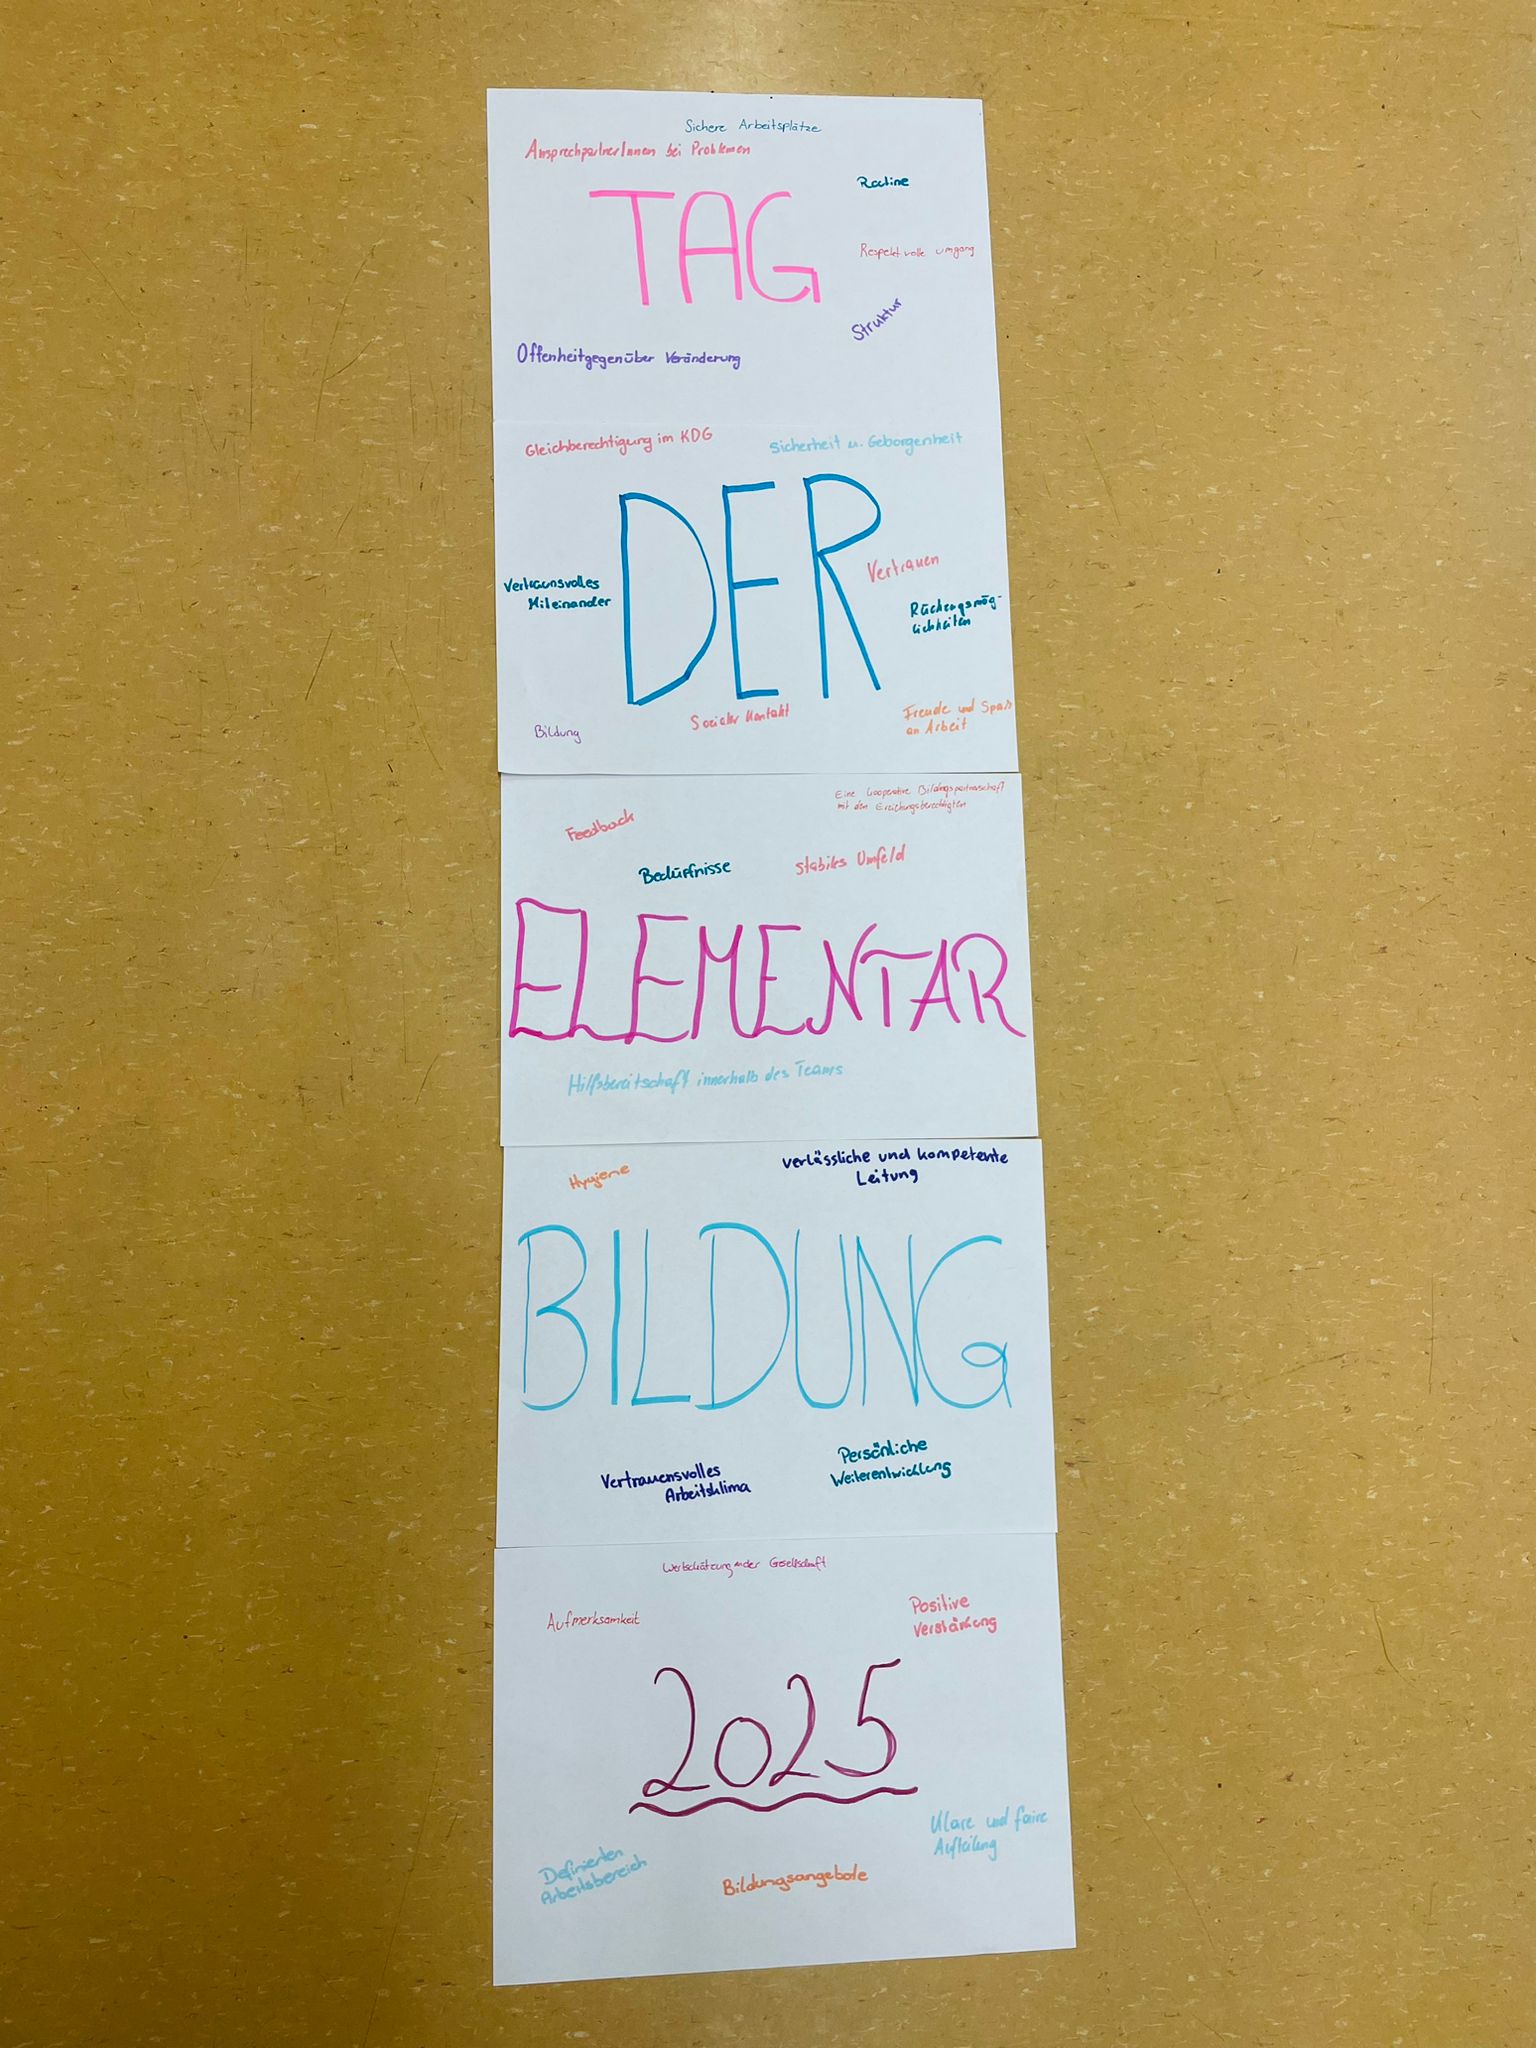 Sichere Arbeitsplätze
AnsprechpartnerInnen bei Problemen
Routine
TAG
Respektvolle umgang
Struktur
Offenheitgegenüber Veränderung
Gleichberechtigung im KDG
Sicherheit u. Geborgenheit
DER
Vertrauen
Vertrauensvolles
Miteinander
Rückzugsmög-
lichkeiten
Sozialer Kontakt
Freude und Spaß
an Arbeit
Bildung
Eine kooperative Bildungspartnerschaft
mit den Erziehungsberechtigten
Feedback
Bedürfnisse
Stabiles Umfeld
ELEMENTAR
Hilfsbereitschaft innerhalb des Teams
Hygiene
verlässliche und kompetente
Leitung
BILDUNG
Persönliche
Weiterentwicklung
Vertrauensvolles
Arbeitsklima
Wertschätzung der Gesellschaft
Aufmerksamkeit
Positive
Verstärkung
2025
Klare und faire
Aufteilung
Definierten
Arbeitsbereich
Bildungsangebote